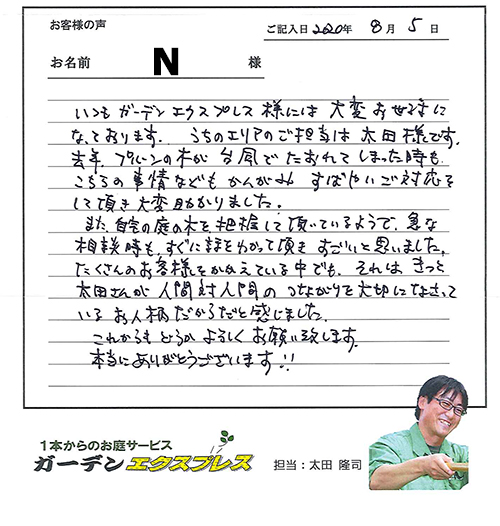 お客様の声
ご記入日 2020年 8月 5日
お名前 N 様
いつも ガーデンエクスプレス 様には 大変 お世話に
なっております。 うちのエリアのご担当は 太田様です。
去年、プルーンの木が 台風で たおれて しまった時も、
こちらの 事情なども かんがみ すばやいご対応を
して頂き 大変 助かりました。
また、自宅の庭の木を 把握して 頂いているようで、急な
相談時も、すぐに話をわかって頂き すごいと思いました。
たくさんのお客様をかかえている中でも、それは きっと
太田さんが 人間対人間の つながりを大切になさって
いる お人柄だからだと感じました。
これからも どうか よろしく お願い致します。
本当にありがとうございます!!
1本からのお庭サービス
ガーデンエクスプレス
担当:太田 隆司